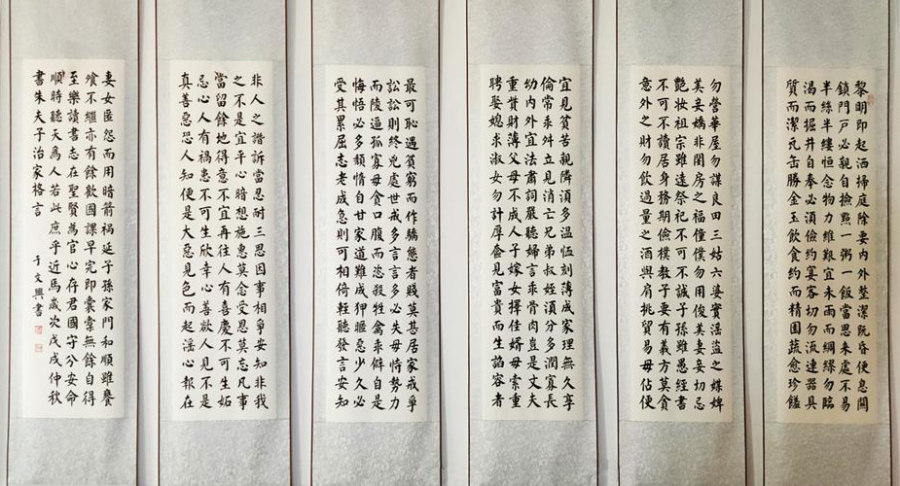 黎明即起洒掃庭除要內外整潔既昏便息關
鎖門戶必親自撿點一粥一飯當思来處不易
半絲半縷恒念物力維艱宜未雨而綢繆勿臨
渴而掘井自奉必須儉約宴客切勿流連器具
質而潔瓦缶勝金玉飲食約而精園蔬愈珍饈
勿營華屋勿謀良田三姑六婆實淫盜之媒婢
美妾嬌非閨房之福僮僕勿用俊美妻妾切忌
艷妝祖宗雖遠祭祀不可不誠子孫雖愚經書
不可不讀居身務期儉樸教子要有義方莫貪
意外之財勿飲過量之酒與肩挑貿易毋佔便
宜見貧苦親隣須多溫恤刻薄成家理無久享
倫常乖舛立見消亡兄弟叔姪須分多潤寡長
幼內外宜法肅詞嚴聽婦言乖骨肉豈是丈夫
重貲財薄父母不成人子嫁女擇佳婿毋索重
聘娶媳求淑女勿計厚奩見富貴而生諂容者
最可恥遇貧窮而作驕態者賤莫甚居家戒爭
訟訟則終凶處世戒多言言多必失毋恃勢力
而陵逼孤寡毋貪口腹而恣殺牲禽乖僻自是
悔悟必多頹惰自甘家道難成狎暱惡少久必
受其累屈志老成急則可相倚輕聽發言安知
非人之譖訴當忍耐三思因事相爭安知非我
之不是宜平心暗想施惠莫念受恩莫忘凡事
當留餘地得意不宜再往人有喜慶不可生妬
忌心人有禍患不可生欣幸心善欲人見不是
真善惡恐人知便是大惡見色而起淫心報在
妻女匿怨而用暗箭禍延子孫家門和順雖饔
飧不繼亦有餘歡國課早完即囊橐無餘自得
至樂讀書志在聖賢為官心存君國守分安命
順時聽天為人若此庶乎近焉歲次戊戌仲秋
書朱夫子治家格言 于文興書